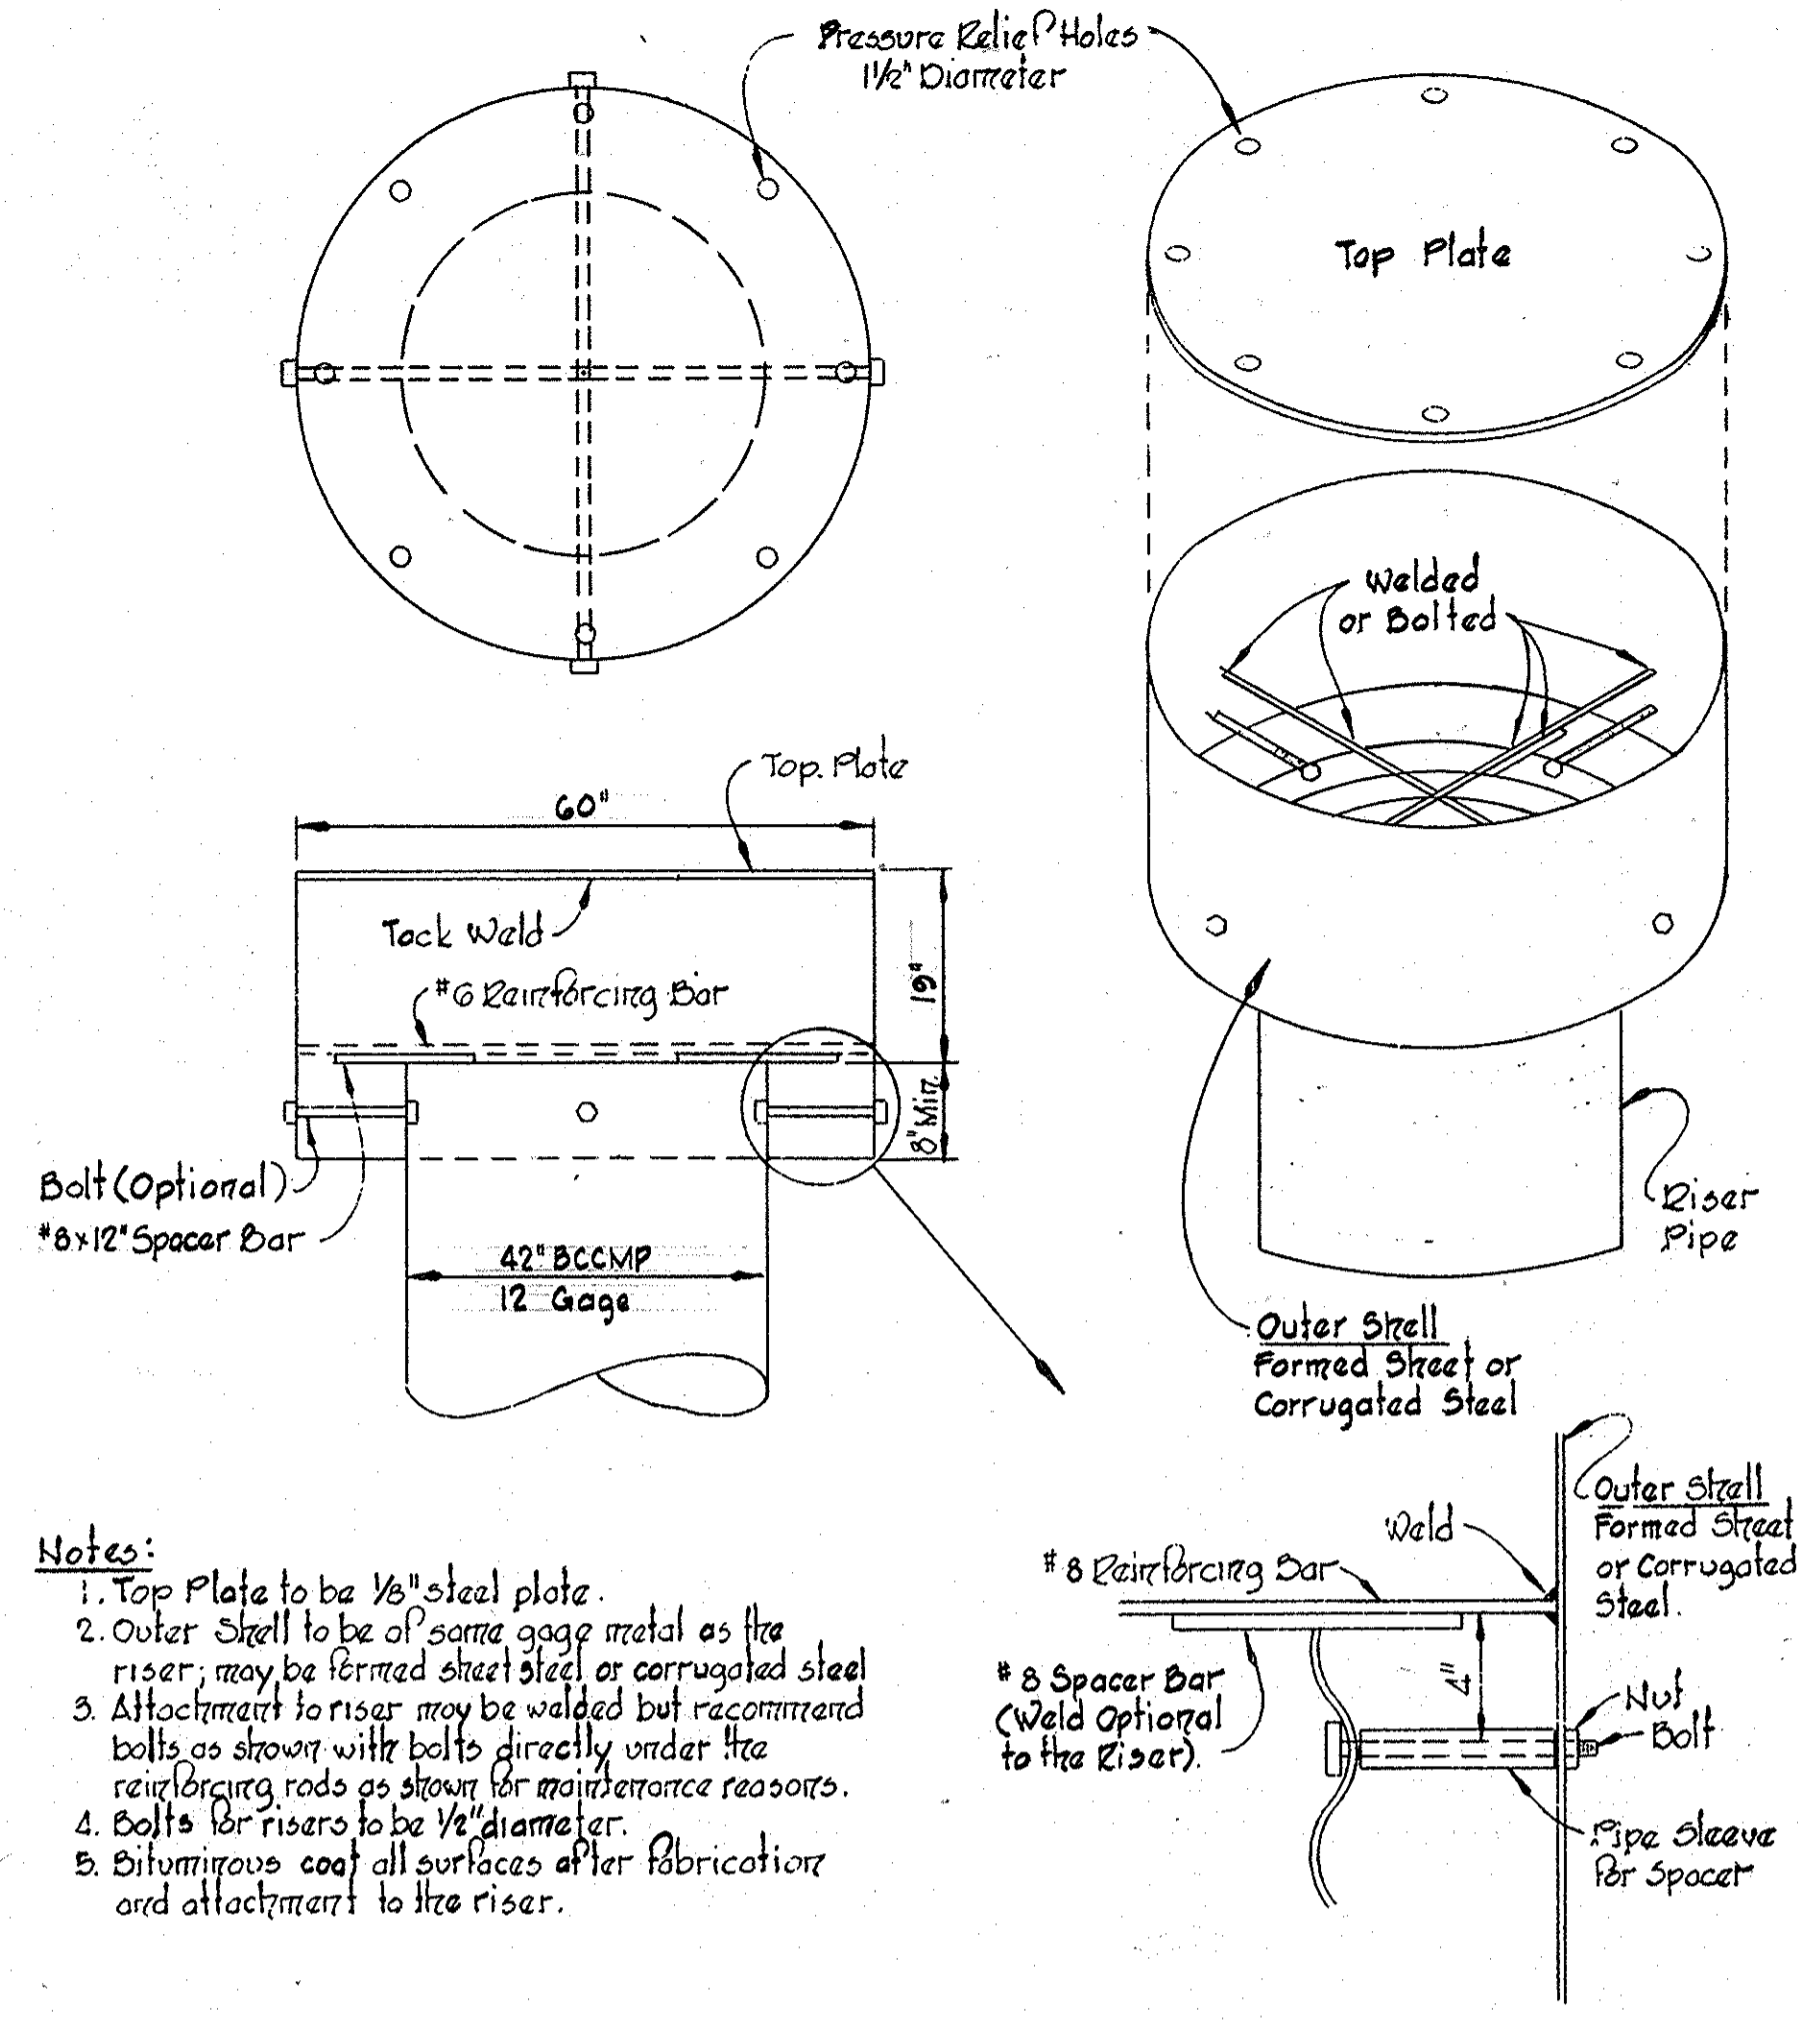 Pressure Relief Holes
1½" Diameter
Top Plate
Welded
or Bolted
Top Plate
60"
Tack Weld
#6 Reinforcing Bar
19"
8" Min.
Bolt (Optional)
#8x12" Spacer Bar
42" BCCMP
12 Gage
Riser
Pipe
Outer Shell
Formed Sheet or
Corrugated Steel
Outer Shell
Formed Sheet
or Corrugated
Steel.
Weld
#8 Reinforcing Bar
#8 Spacer Bar
(Weld Optional
to the Riser).
4"
Nut
Bolt
Pipe Sleeve
For Spacer
Notes:
1. Top Plate to be 1/8" steel plate.
2. Outer Shell to be of same gage metal as the
riser; may be formed sheet steel or corrugated steel
3. Attachment to riser may be welded but recommend
bolts as shown with bolts directly under the
reinforcing rods as shown for maintenance reasons.
4. Bolts for risers to be 1/2" diameter.
5. Bituminous coat all surfaces after fabrication
and attachment to the riser.